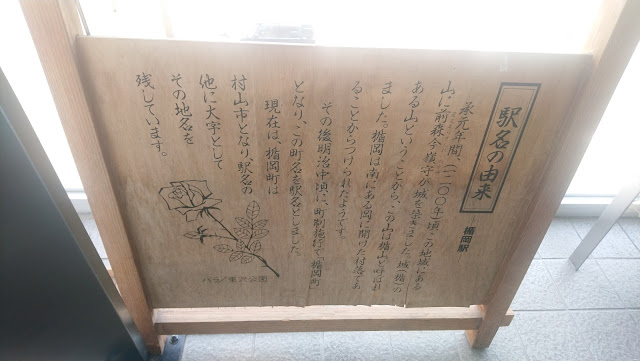 駅名の由来
楯岡駅
承元年間、(一二〇〇年)頃この地域にある
山に前森今嶺守が城を築きました。城(楯)の
ある山ということから、この山は楯山と呼ばれ
ました。楯岡は南にある岡に開けた村落であ
ることからつけられたようです。
その後明治中頃に、町制施行で「楯岡町」
となり、この町名を駅名としました。
現在は、楯岡町は
村山市となり、駅名の
他に大字として
その地名を
残しています。
バラの東沢公園